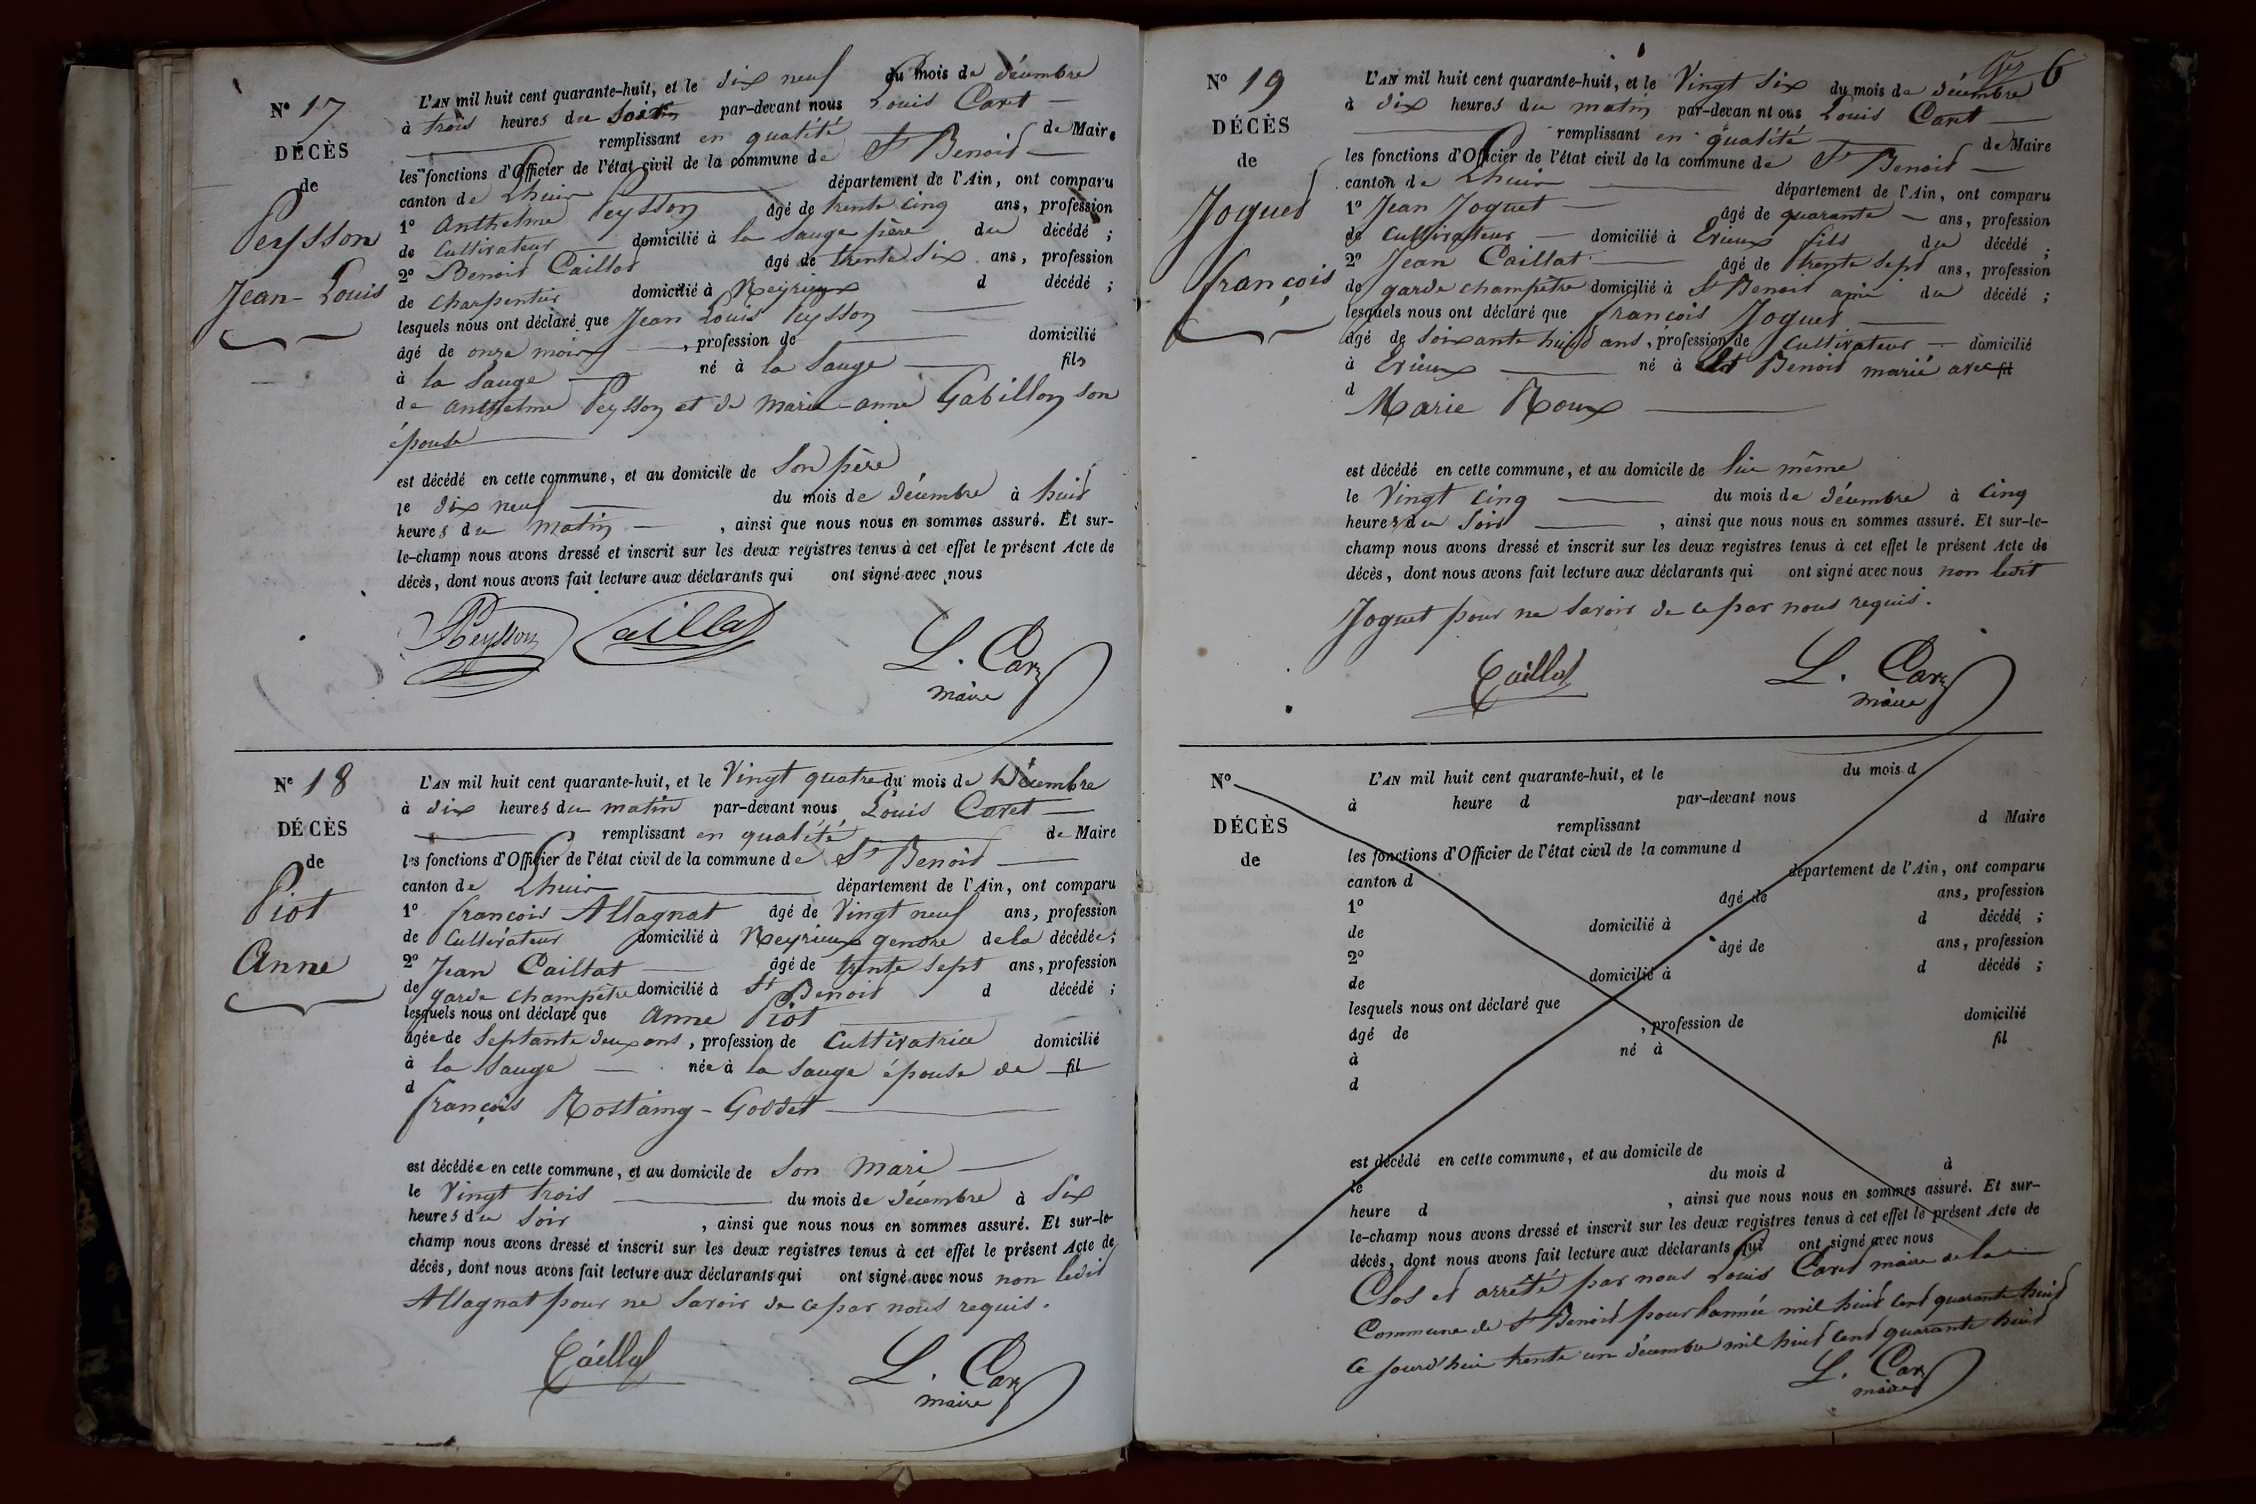 N° 17
DÉCÈS
de
Peysson
Jean-Louis
L'AN mil huit cent quarante-huit, et le dix neuf du mois de décembre
à trois heures du soir par-devant nous Louis Caret
remplissant en qualité de Maire
les fonctions d'Officier de l'état civil de la commune de St Benoit
canton de Lhuis département de l'Ain, ont comparu
1° Anthelme Peysson âgé de trente cinq ans, profession
de Cultivateur domicilié à la Sauge père du décédé ;
2° Benoit Caillat âgé de trente six ans, profession
de charpentier domicilié à Neyrieux d décédé ;
lesquels nous ont déclaré que Jean Louis Peysson
âgé de onze mois, profession de domicilié
à la Sauge né à la Sauge fils
de anthelme Peysson et de marie-anne Gabillon son
épouse
est décédé en cette commune, et au domicile de Son père
le dix neuf du mois de décembre à huit
heures du matin, ainsi que nous nous en sommes assuré. Et sur-
le-champ nous avons dressé et inscrit sur les deux registres tenus à cet effet le présent Acte de
décès, dont nous avons fait lecture aux déclarants qui ont signé avec nous
Peysson Caillat L. Caret
maire
N° 18
DÉCÈS
de
Piot
Anne
L'AN mil huit cent quarante-huit, et le Vingt quatre du mois de Décembre
à dix heures du matin par-devant nous Louis Caret
remplissant en qualité de Maire
les fonctions d'Officier de l'état civil de la commune de St Benoit
canton de Lhuis département de l'Ain, ont comparu
1° françois Allagnat âgé de Vingt neuf ans, profession
de Cultivateur domicilié à Neyrieux gendre de la décédée ;
2° Jean Caillat âgé de trente Sept ans, profession
de garde champêtre domicilié à St Benoit d décédé ;
lesquels nous ont déclaré que Anne Piot
âgée de Septante deux ans, profession de Cultivatrice domicilié
à la Sauge née à la Sauge épouse de fil
d françois Rostaing-Goddet
est décédée en cette commune, et au domicile de Son Mari
le Vingt trois du mois de décembre à Six
heures du Soir, ainsi que nous nous en sommes assuré. Et sur-le-
champ nous avons dressé et inscrit sur les deux registres tenus à cet effet le présent Acte de
décès, dont nous avons fait lecture aux déclarants qui ont signé avec nous non ledit
Allagnat pour ne Savoir de ce par nous requis.
Caillat L. Caret
maire
6
N° 19
DÉCÈS
de
Joguet
françois
L'AN mil huit cent quarante-huit, et le Vingt Six du mois de décembre
à dix heures du matin par-devan nt ous Louis Caret
remplissant en qualité de Maire
les fonctions d'Officier de l'état civil de la commune de St Benoit
canton de Lhuis département de l'Ain, ont comparu
1° Jean Joguet âgé de quarante ans, profession
de Cultivateur domicilié à Erieux fils du décédé ;
2° Jean Caillat âgé de trente Sept ans, profession
de garde champêtre domicilié à St Benoit ami du décédé ;
lesquels nous ont déclaré que françois Joguet
âgé de Soixante huit ans, profession de Cultivateur domicilié
à Erieux né à St Benoit marié avec fil
d Marie Roux
est décédé en cette commune, et au domicile de lui même
le Vingt Cinq du mois de décembre à Cinq
heures du Soir, ainsi que nous nous en sommes assuré. Et sur-le-
champ nous avons dressé et inscrit sur les deux registres tenus à cet effet le présent Acte de
décès, dont nous avons fait lecture aux déclarants qui ont signé avec nous non ledit
Joguet pour ne Savoir de ce par nous requis.
Caillat L. Caret
maire
N°
DÉCÈS
de
L'AN mil huit cent quarante-huit, et le du mois d
à heure d par-devant nous
remplissant d Maire
les fonctions d'Officier de l'état civil de la commune d
canton d département de l'Ain, ont comparu
1° âgé de ans, profession
de domicilié à d décédé ;
2° âgé de ans, profession
de domicilié à d décédé ;
lesquels nous ont déclaré que
âgé de , profession de domicilié
à né à fil
d
est décédé en cette commune, et au domicile de
le du mois d à
heure d , ainsi que nous nous en sommes assuré. Et sur-
le-champ nous avons dressé et inscrit sur les deux registres tenus à cet effet le présent Acte de
décès, dont nous avons fait lecture aux déclarants qui ont signé avec nous
Clos et arrêté par nous Louis Caret maire de la
Commune de St Benoit pour l'année mil huit cent quarante huit
ce jourd'hui trente un décembre mil huit cent quarante huit
L. Caret
maire